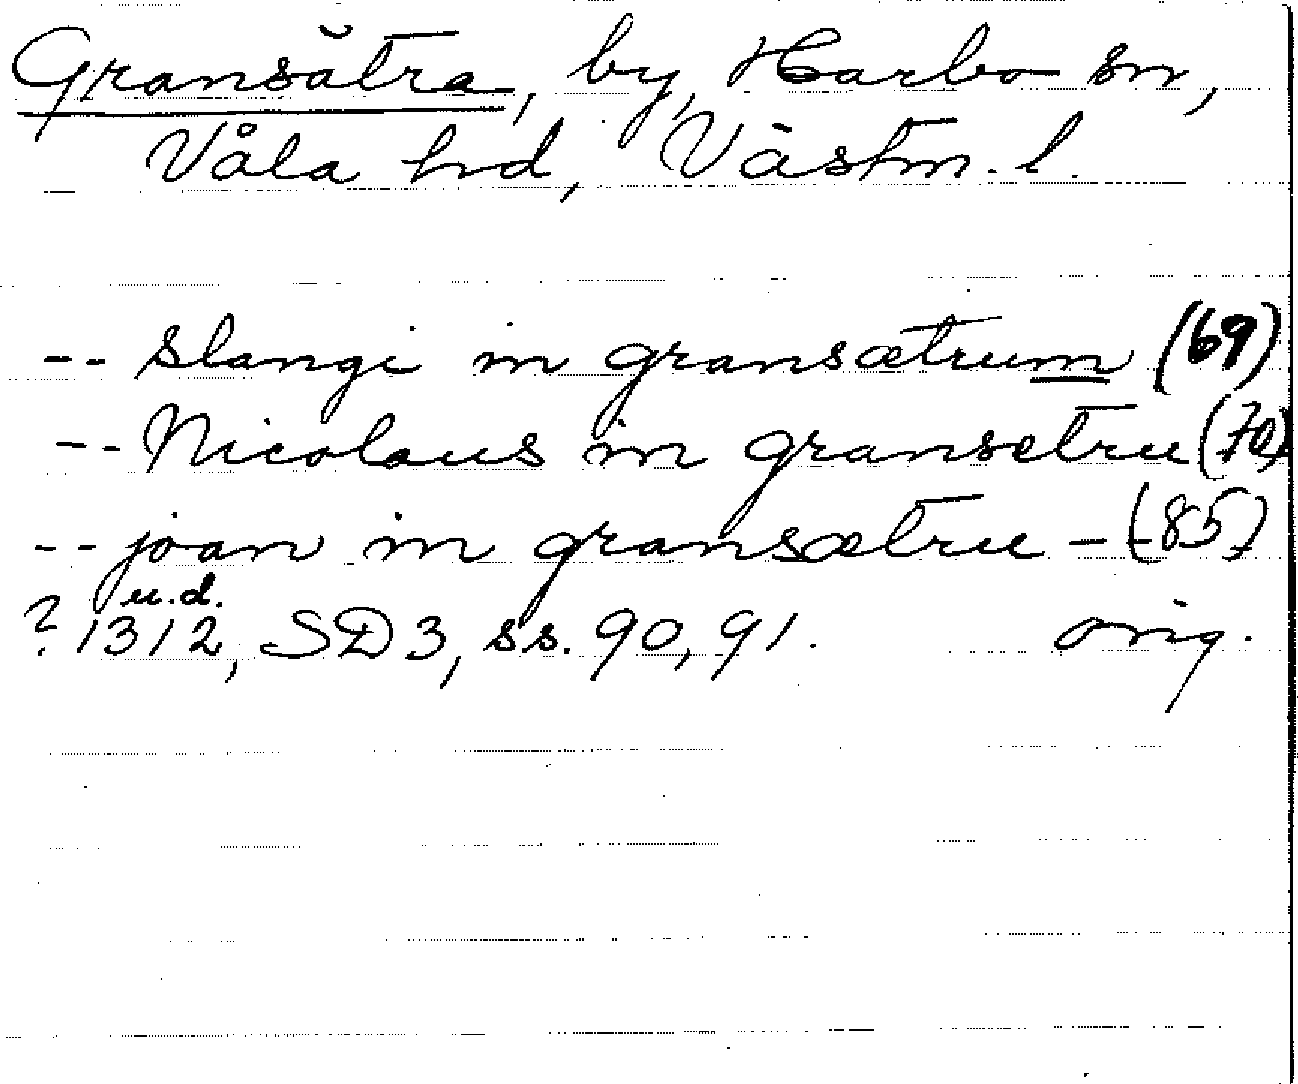 Gransätra, by, Harbo sn,
Våla hd, Västm. l.
-- slangi in gransætrum (69)
-- Nicolaus in gransetru (70)
-- joan in gransætru -- (85)
u.d.
? 1312, SD3, ss. 90, 91. orig.